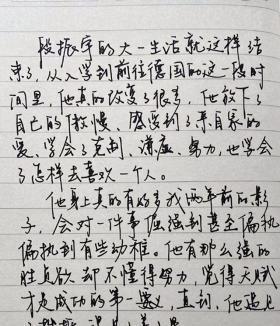 段振宇的大一生活就这样结
束了,从入学到前往德国的这一段时
间里,他真的改变了很多,他放下了
自己的傲慢、感受到了来自家的
爱,学会了克制、谦虚、努力,也学会
了怎样去喜欢一个人。
他身上真的有好多我两年前的影
子,会对一件事倔强到甚至偏执
偏执到有些幼稚。他有那么强的
胜负欲却不懂得努力,觉得天赋
才是成功的第一要义,直到,他遇上